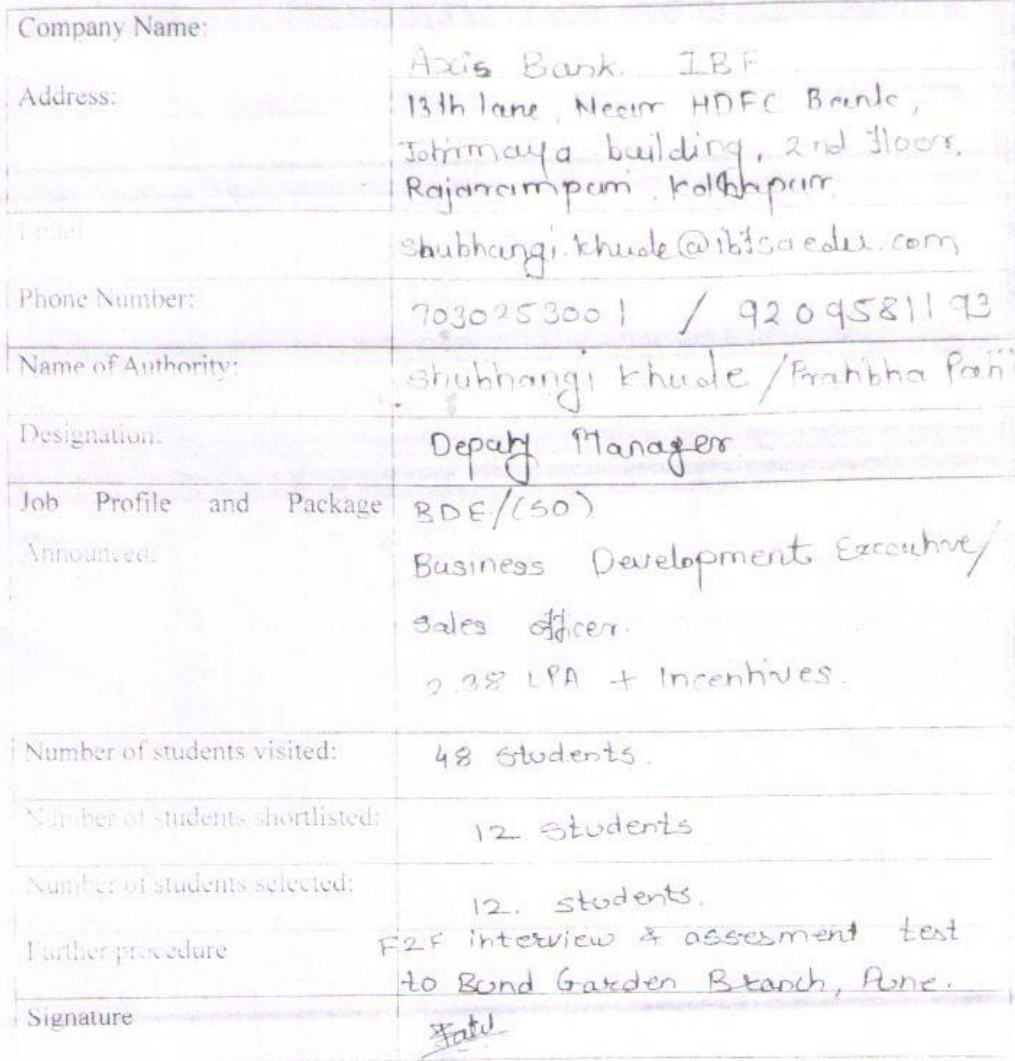 Company Name:
Axis Bank. IBF
Address:
13th lane, Near HDFC Bank,
building, 2nd floor,
Rajarampuri Kolhapur
Email
shubhangi.khude@ibfsaedu.com
Phone Number:
7030253001 / 9209581193
Name of Authority:
Shubhangi Khude / Pratibha Patil
Designation:
Deputy Manager
Job Profile and Package
BDE/(SO)
Announced:
Business Development Executive/
Sales officer.
2.38 LPA + Incentives.
Number of students visited:
48 Students.
Number of students shortlisted:
12 Students
Number of students selected:
12. Students.
Further procedure
F2F interview & assesment test
to Bund Garden Branch, Pune.
Signature
Patil